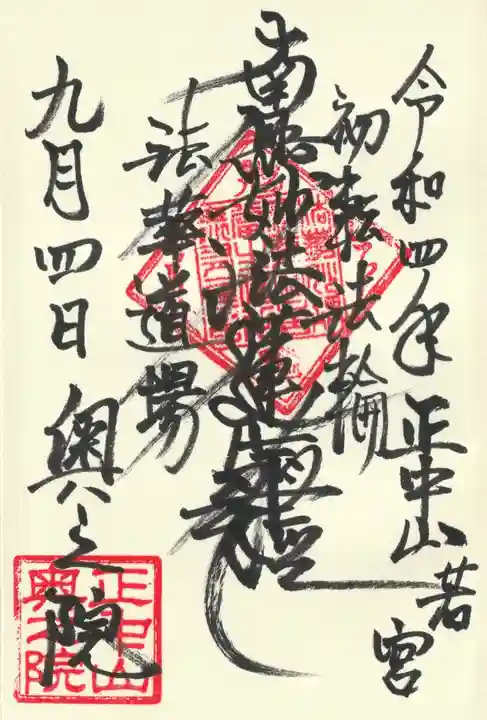 令和四年 正中山 若宮
初転法輪
南無妙法蓮華經
法華道場
九月四日 奥之院
正中山
奥之院